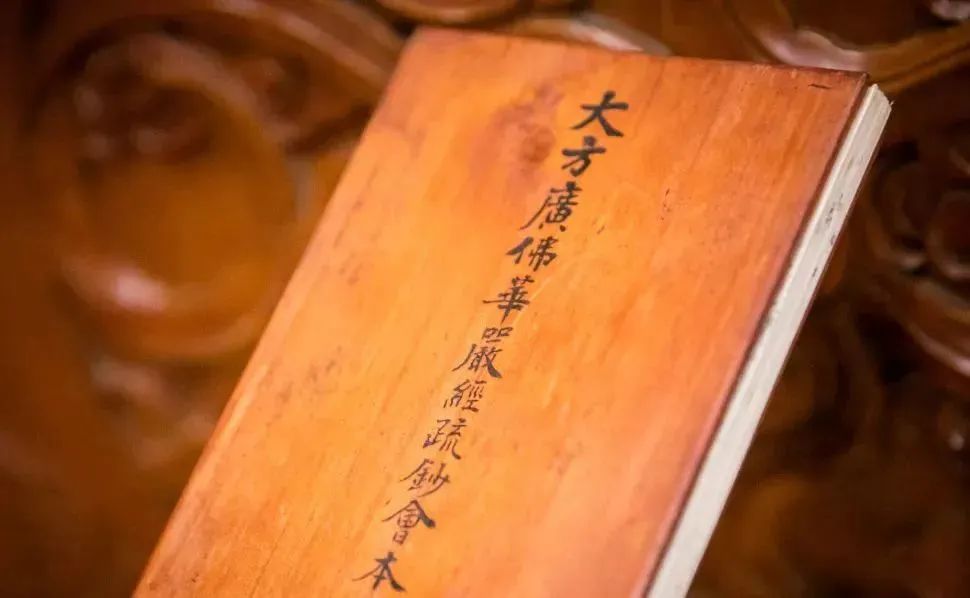 大方廣佛華嚴經疏鈔會本